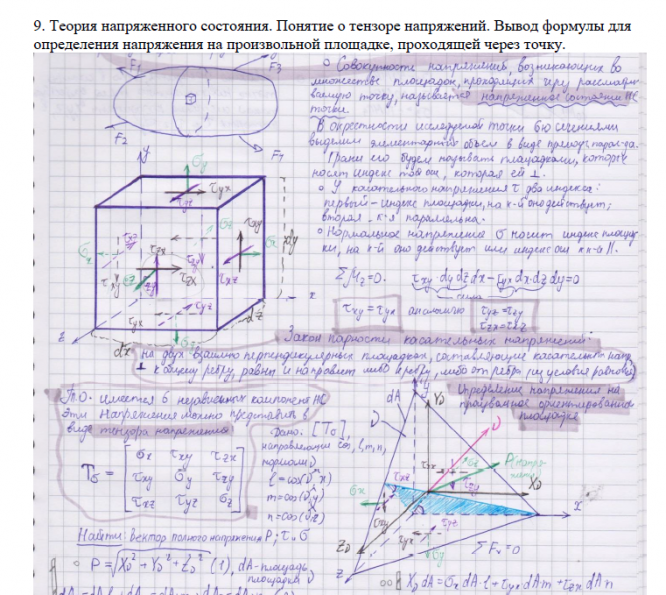 9. Теория напряженного состояния. Понятие о тензоре напряжений. Вывод формулы для
определения напряжения на произвольной площадке, проходящей через точку.
F1
F3
F2
F4
Совокупность напряжений, возникающих во
множестве площадок, проходящих через рассматри-
ваемую точку, называется напряженное состояние НС
точки.
В окрестности исследуемой точки 6ю сечениями
выделим элементарный объем в виде
Грани его будем называть площадками, которые
носят индекс той оси, которая ей ⊥.
У касательного напряжения τ два индекса:
первый – индекс площадки, на к-й оно действует;
вторая – к-я параллельна.
Нормальное напряжение σ носит индекс площад-
ки, на к-й оно действует или индекс оси к к-й ||.
y
σy
τyx
τyz
τxy
σx
τxz
τzx
τzy
σz
dy
dz
dx
x
z
ΣMz=0. τxy dy dz dx – τyx dx dz dy=0
сила
τxy = τyx аналогично τyz = τzy
τzx = τxz
Закон парности касательных напряжений:
на двух взаимно перпендикулярных площадках, составляющие касательного напр
⊥ к общему ребру, равны и направлены либо к ребру, либо от ребра (из условия равнов)
Т.О. имеется 6 независимых компонент НС
Эти напряжения можно представить в
виде тензора напряжения
Tσ =
σx τxy τzx
τxy σy τzy
τxz τyz σz
Дано: [Tσ]
направляющие cos, l, m, n,
нормали ν
l = cos(ν^x)
m = cos(ν^y)
n = cos(ν^z)
Определение напряжения на
произвольно ориентированной
площадке
dA
ν
Yν
P
Xν
Zν
x
z
ΣFx = 0
Найти: вектор полного напряжения P; τ и σ
P = √Xν² + Yν² + Zν² (1), dA – площадь
площадки ν
Xν dA = σx dA·l + τyx dA m + τzx dA n